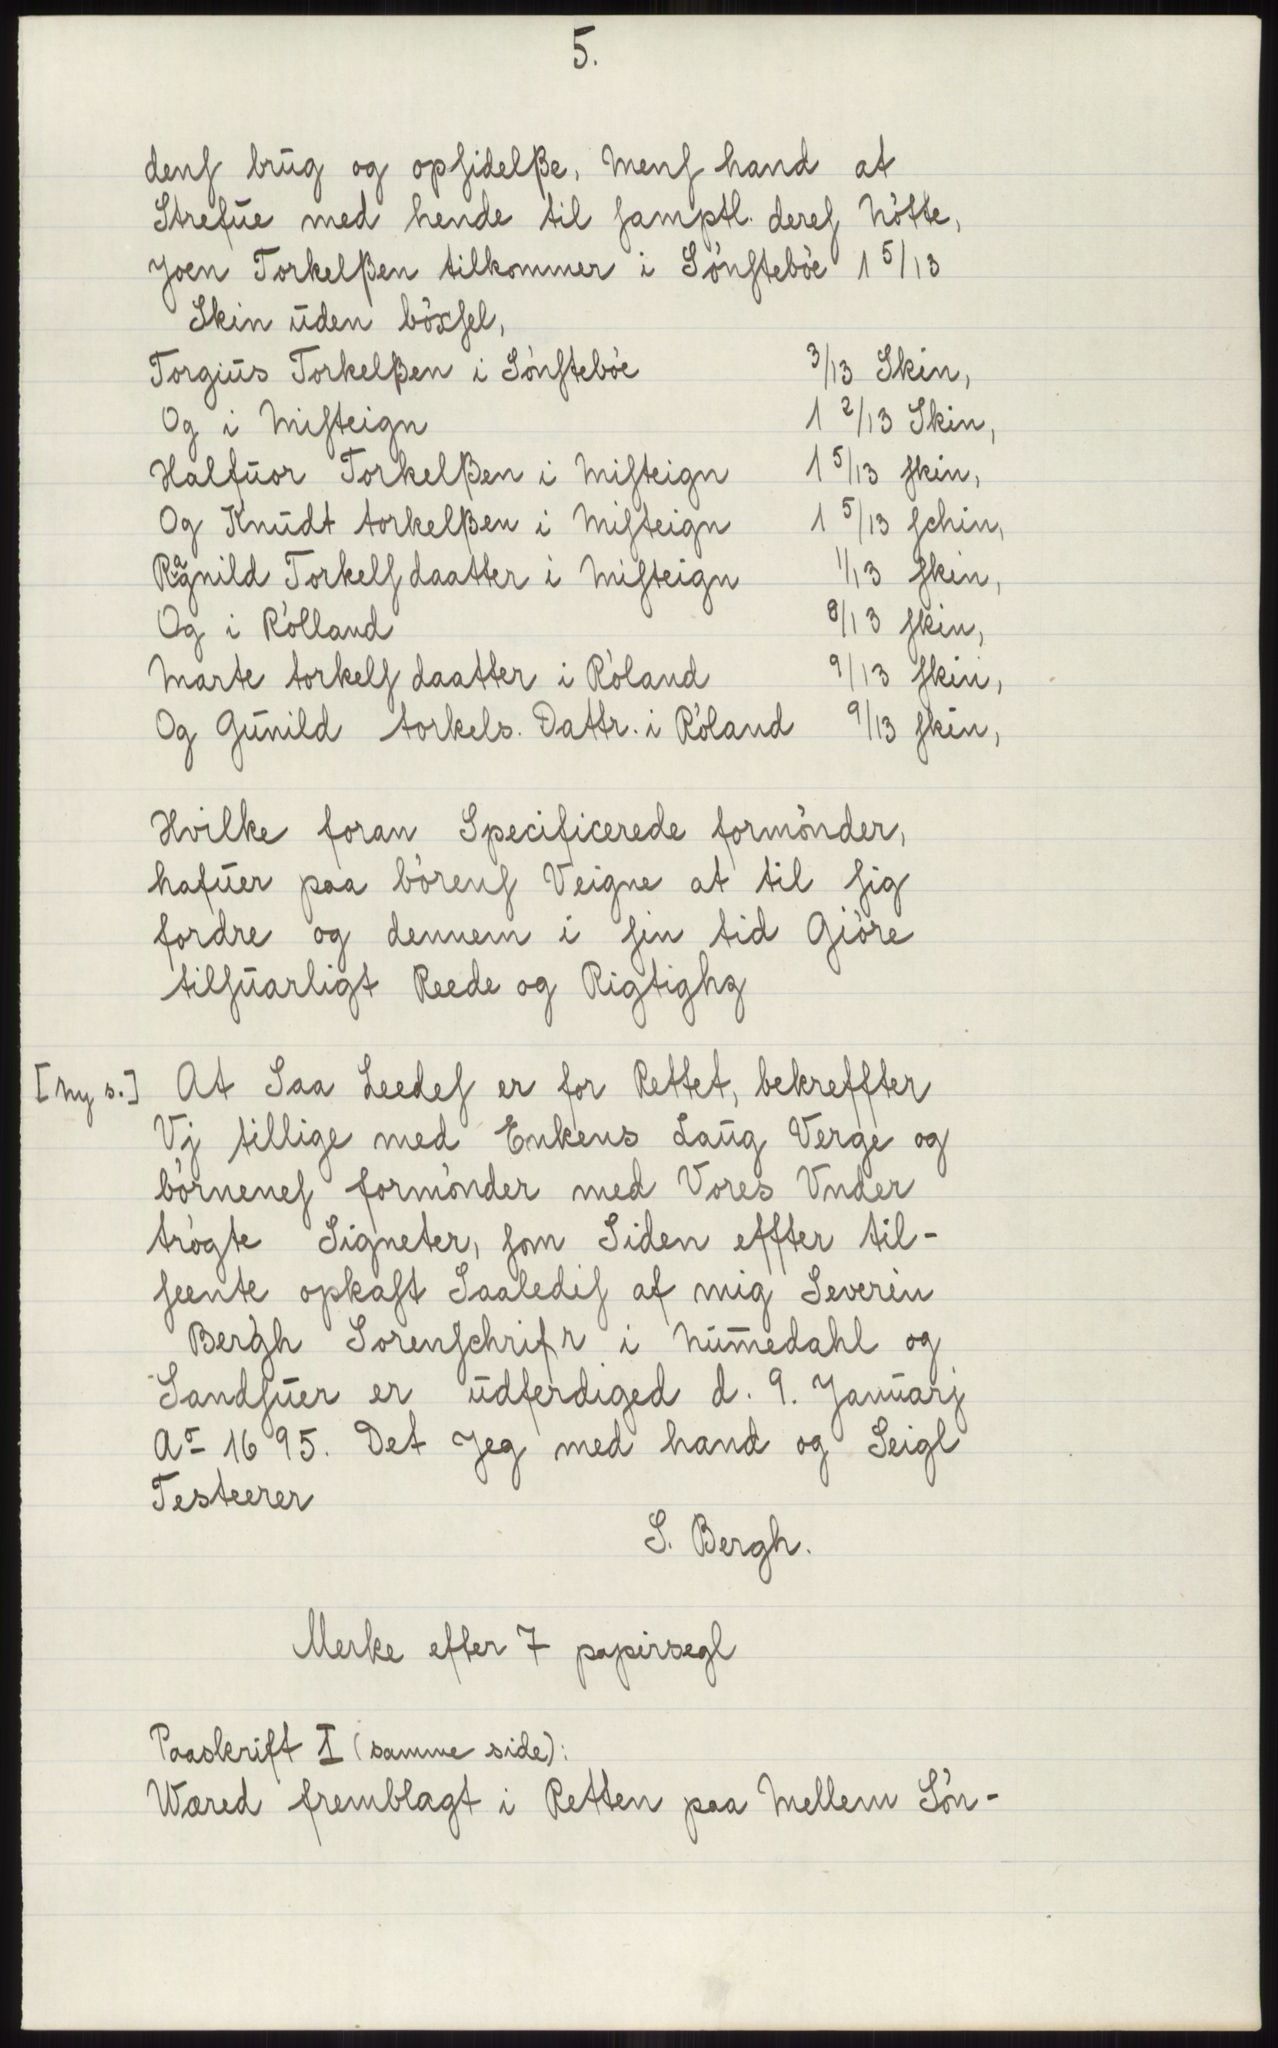 5.
denſ brug og opſidelße, Menſ hand at
Strefue med hende til ſamptl. dereſ Nótte,
Joen Torkelßen tilkommer i Sónſtebóe 1 5/13
Skin uden bóxſel,
Torgius Torkelßen i Sónſtebóe 3/13 Skin,
Og i Miſteign 1 2/13 Skin,
Halfuor Torkelßen i Miſteign 1 5/13 ſkin,
Og Knudt torkelßen i Miſteign 1 5/13 ſchin,
Ragnild Torkelſdaatter i Miſteign 1/13 ſkin,
Og i Rólland 8/13 ſkin,
Marte torkelſdaatter i Róland 9/13 ſkin,
Og Gunild torkels. Dattr. i Róland 9/13 ſkin,
Hvilke foran Specificerede formónder,
hafuer paa bórenſ Veigne at til ſig
fordre og dennem i ſin tid Gióre
tilſuarligt Reede og Rigtighz
[Ny s.] At Saa Leedeſ er for Rettet, bekreffter
Vj tillige med Enkens Laug Verge og
bórneneſ formónder med Vores Vnder
trógte Signeter, ſom Siden effter til-
ſeente opkaſt Saalediſ af mig Severin
Bergh Sorenſchrifr i Numedahl og
Sandſuer er udferdiged d. 9. Januarj
Ao 1695. Det Jeg med hand og Seigl
Testeerer
S. Bergh.
Merke efter 7 papirsegl
Paaskrift I (samme side):
Wæred fremblagt i Retten paa Mellem Són-